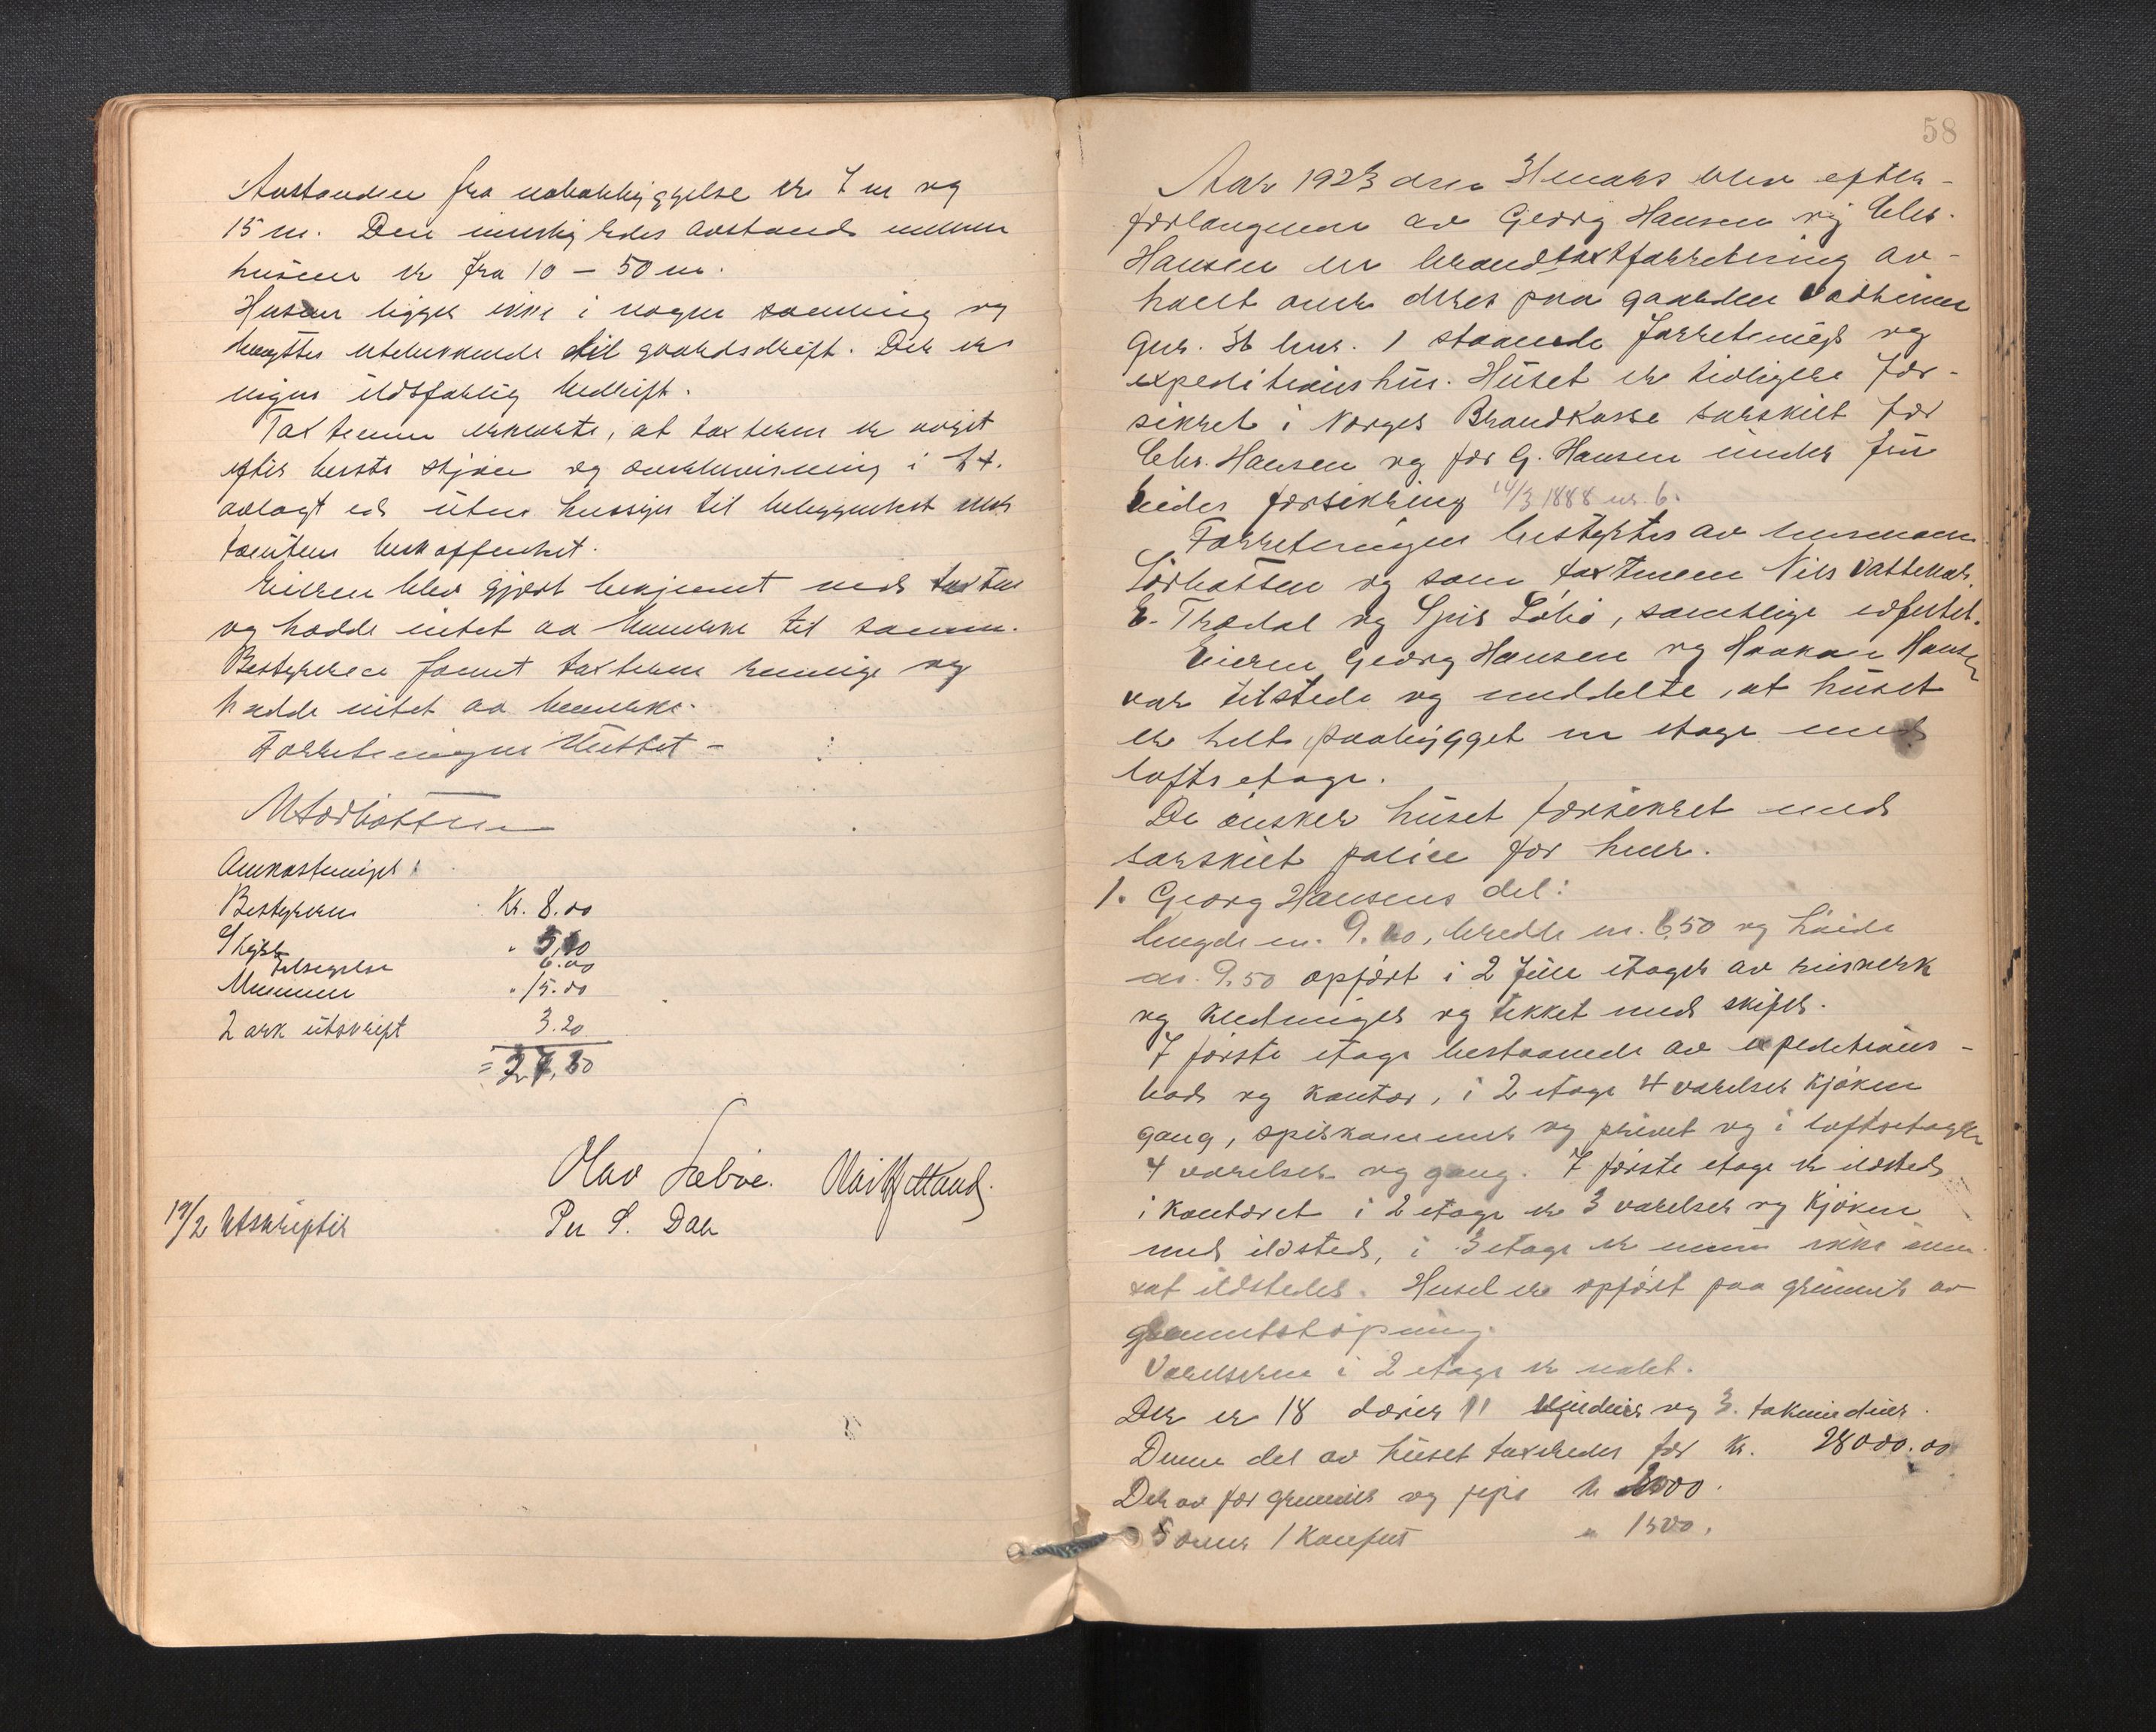 Avstanden fra nabobebyggelse er 7 m og
15 m. Den indbyrdes avstand mellem
husene er fra 10 – 50 m.
Husene ligger ikke i nogen samling og
benyttes utelukkende til gaardsdrift. Der er
ingen ildsfarlig bedrift.
Taxtmenn erklærte, at taxterne er avgit
efter beste skjøn og overbevisning i h.t.
avlagt ed uten hensyn til beliggenhet eller
tomtens beskaffenhet.
Eieren blev gjort bekjent med taxten
og hadde intet aa bemerke til samme.
Bestyreren fandt taxterne rimelige og
hadde intet aa bemerke.
Forretningen sluttet –
Omkostninger
Bestyreren Kr. 8.00
Skyss " 5,10
Tilsigelse 6.00
Mennene " 15.00
2 ark utskrift 3.20
Olav Sæbøe.
Per S. Dale
12/2 Utskrifter
58
Aar 1923 den 3 mars blev efter-
forlangende av Georg Hansen og Chr.
Hansen en brandtaxtforretning av-
holdt over deres paa gaarden Vadheim
gnr. 36 bnr. 1 staaende forretnings og
expeditionshus. Huset er tidligere for-
sikret i Norges Brandkasse særskilt for
Chr. Hansen og for G. Hansen under
forsikring 14/3 1888 nr. 6.
Forretningen bestyrtes av lensmann
Sørbotten og som taxtmenn Nils Vattekar,
E. Trædal og Sjur Løbø, samtlige edfestet.
Eieren Georg Hansen og Haakon Hansen
var tilstede og meddelte, at huset
er helt paabygget en etage med
loftsetage.
De ønsker huset forsikret med
særskilt police for hver.
1. Georg Hansens del:
lengde m. 9.00, bredde m. 6,50 og høide
m. 9,50 opført i 2 fulle etager av bisverk
og kledninger og tekket med skifer.
I første etage bestaaende av expeditions-
bod og kontor, i 2 etage 4 værelser kjøken
gang, spiskammer og privet og i loftsetagen
4 værelser og gang. I første etage er ildsted
i kontoret i 2 etage er 3 værelser og kjøken
med ildsted, i 3 etage er ennu ikke inn-
sat ildsteder. Huset er opført paa grunnmur av
Værelserne i 2 etage er malt.
Der er 18 dører 11 vinduer og 3 takvinduer.
Denne del av huset taxeredes for Kr. 28000.00
Derav for grunnmur og pipe kr 2000.
5 ovner 1 komfur " 1500.